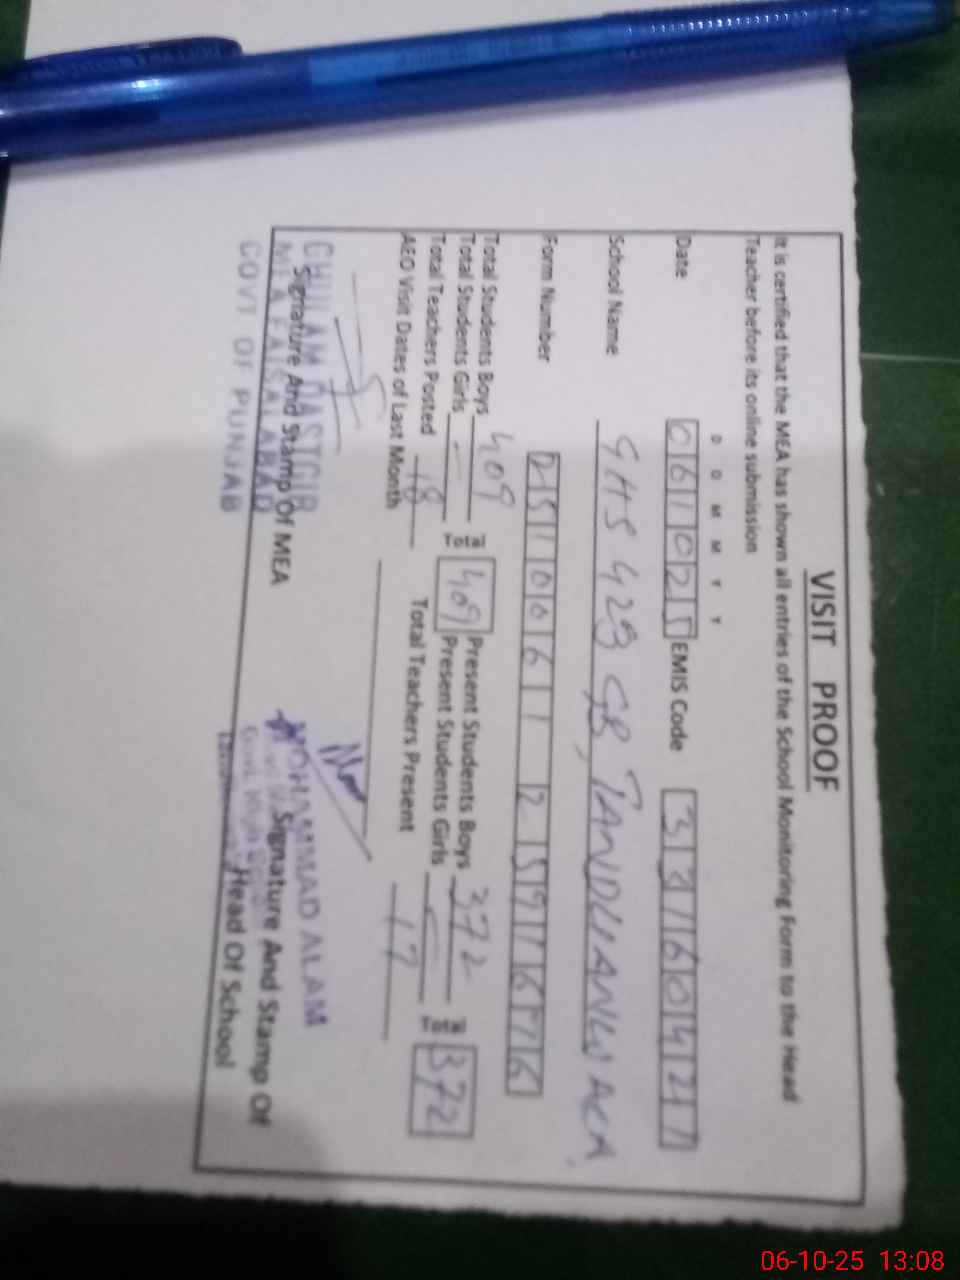 VISIT PROOF
It is certified that the MEA has shown all entries of the School Monitoring Form to the Head
Teacher before its online submission
D D M M Y Y
Date 061025 EMIS Code 33160427
School Name GHS 429 GB, TANDLIANWALA
Form Number
Total Students Boys 409 Total 409 Present Students Boys 372 Total 372
Total Students Girls — Present Students Girls —
Total Teachers Posted 18 Total Teachers Present 17
AEO Visit Dates of Last Month
GHULAM DASTGIR
MEA FAISALABAD
GOVT. OF PUNJAB
Signature And Stamp Of MEA
MOHAMMAD ALAM
Signature And Stamp Of
Head Of School
06-10-25 13:08